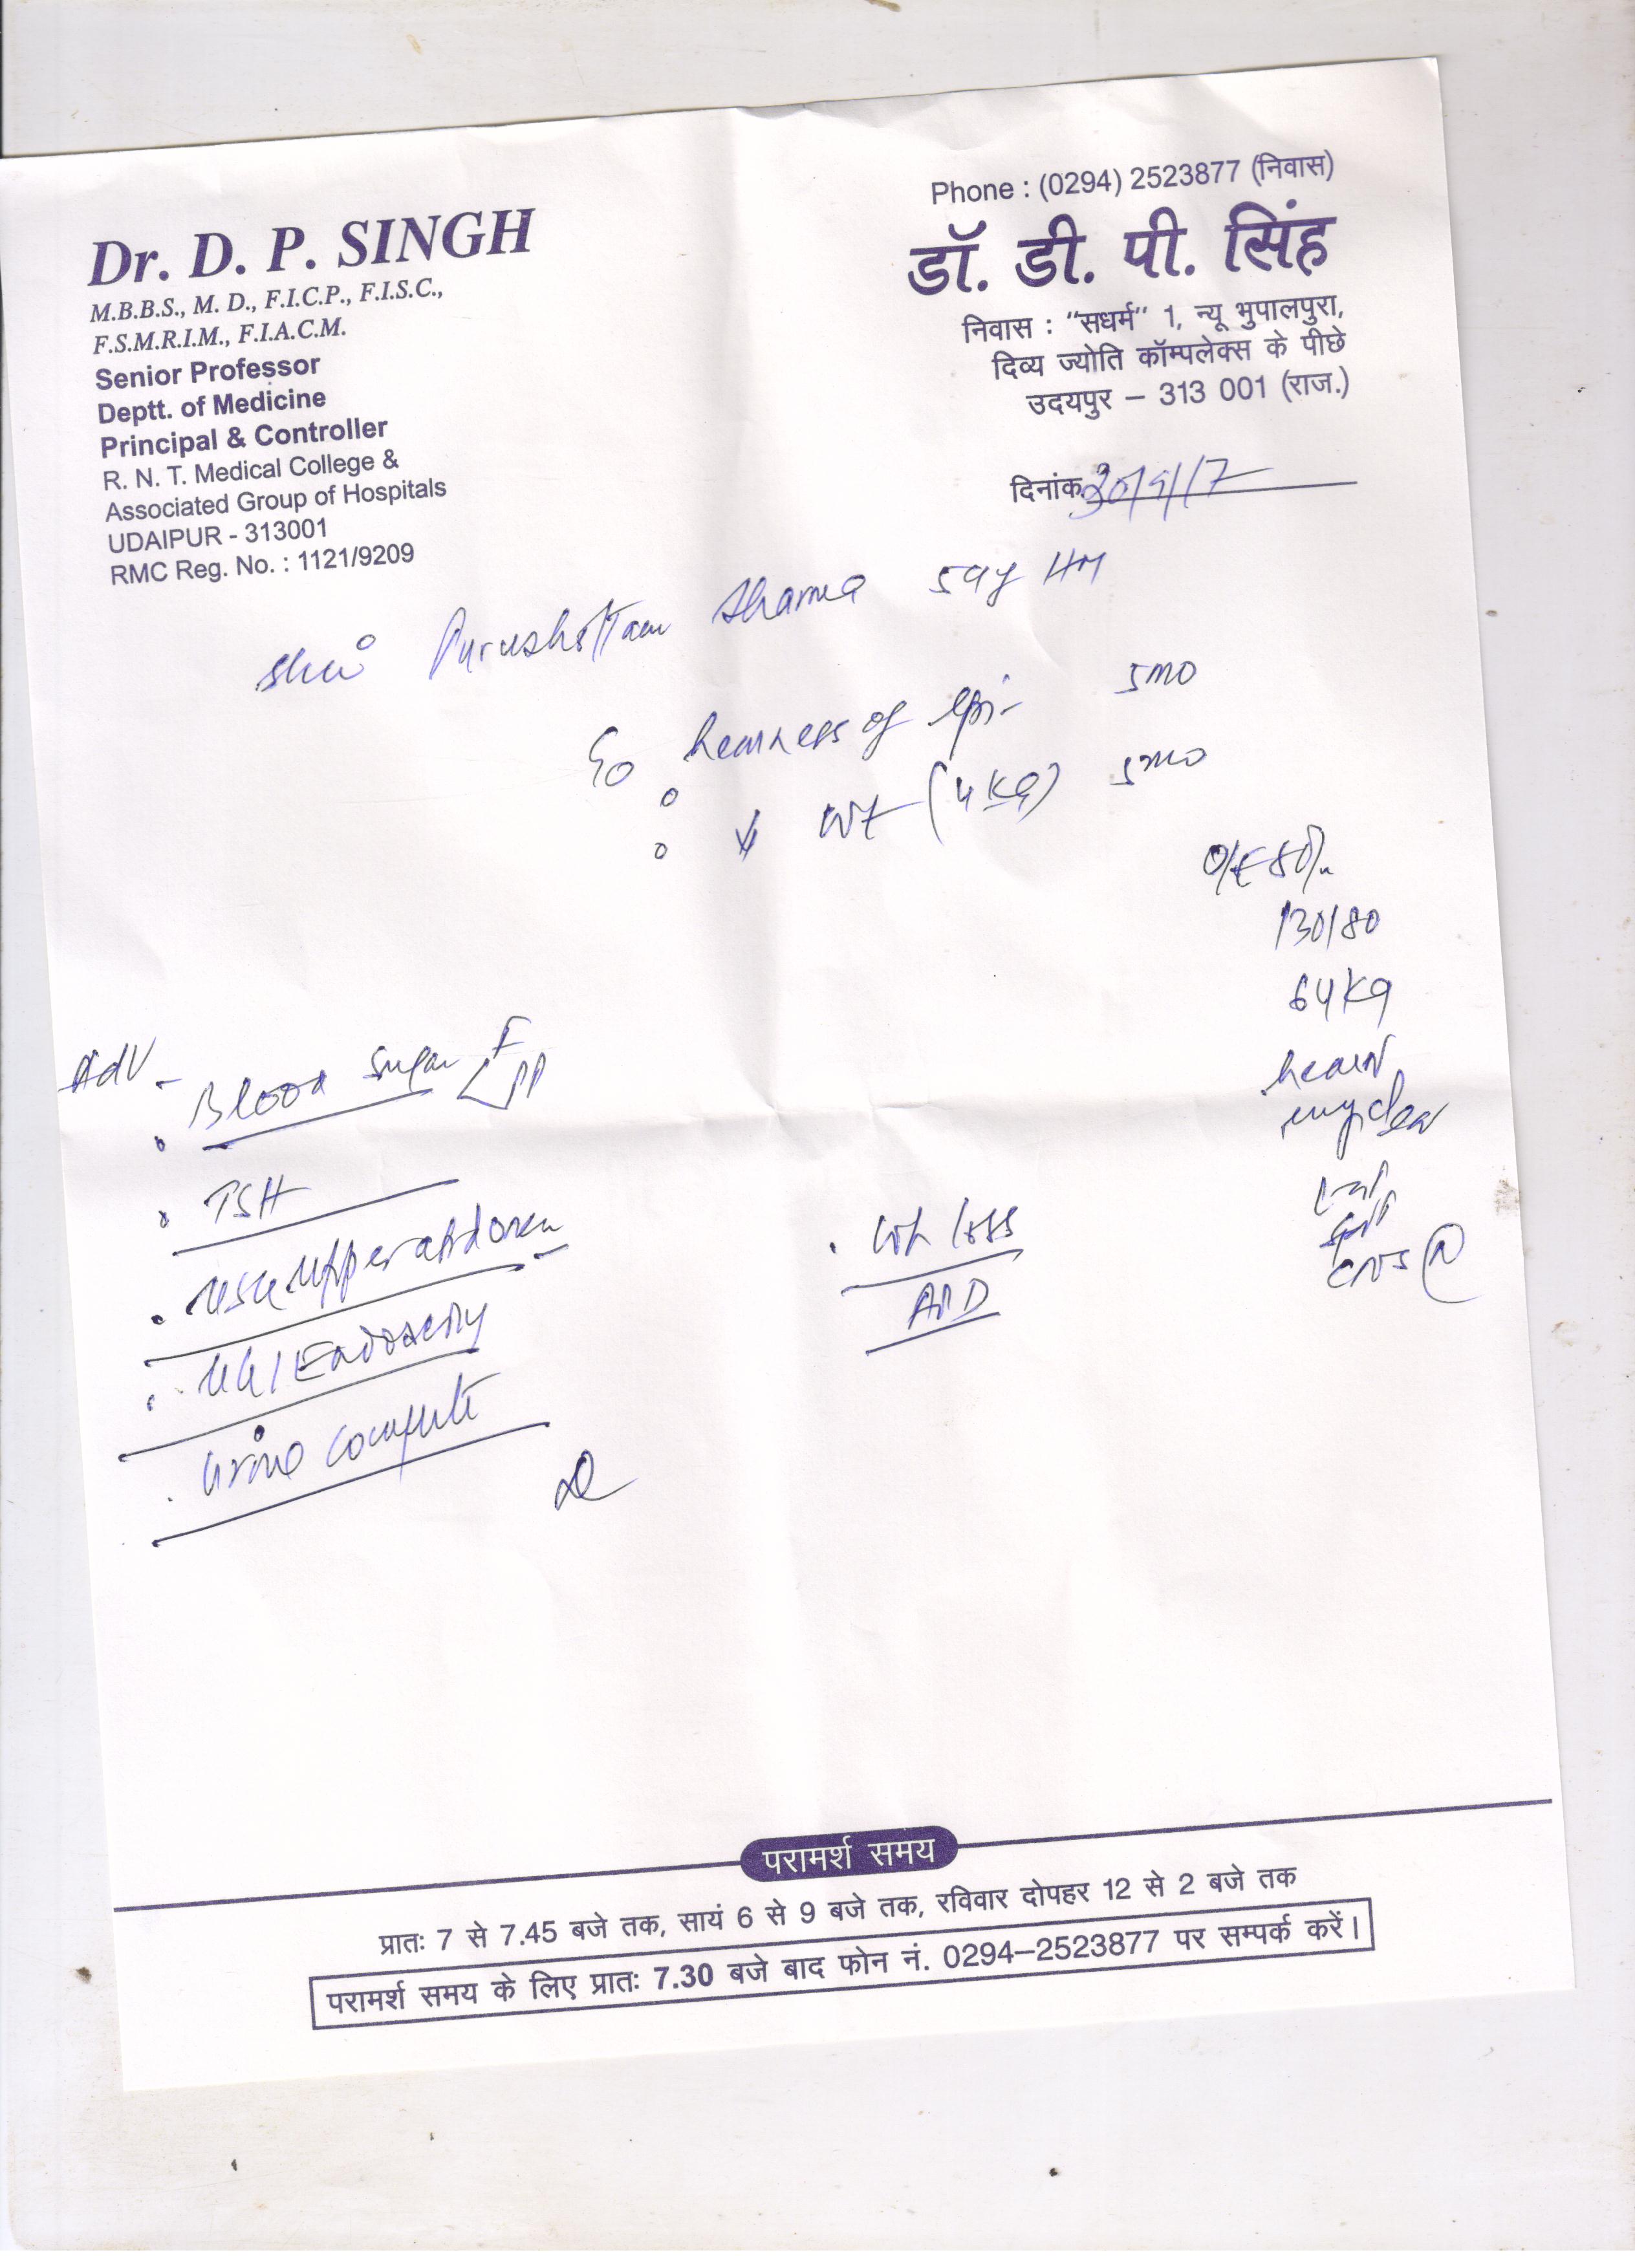 Phone : (0294) 2523877 (निवास)
Dr. D. P. SINGH
M.B.B.S., M. D., F.I.C.P., F.I.S.C.,
F.S.M.R.I.M., F.I.A.C.M.
Senior Professor
Deptt. of Medicine
Principal & Controller
R. N. T. Medical College &
Associated Group of Hospitals
UDAIPUR - 313001
RMC Reg. No. : 1121/9209
डॉ. डी. पी. सिंह
निवास : "सधर्म" 1, न्यू भुपालपुरा,
दिव्य ज्योति कॉम्पलेक्स के पीछे
उदयपुर – 313 001 (राज.)
दिनांक 30/9/17
Shri Purushottam Sharma 59y
C/o heaviness of epi- 5mo
↓ wt (4 Kg) 5mo
O/E 80/m
130/80
64 Kg
Adv - Blood Sugar F PP
TSH
USG Upper abdomen
UGI Endoscopy
Urine complete
Wt loss
APD
CNS N
परामर्श समय
प्रातः 7 से 7.45 बजे तक, सायं 6 से 9 बजे तक, रविवार दोपहर 12 से 2 बजे तक
परामर्श समय के लिए प्रातः 7.30 बजे बाद फोन नं. 0294–2523877 पर सम्पर्क करें।